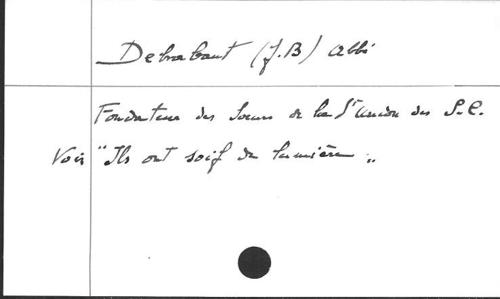 Debrabant (J.B) Abbé
Fondateur des Soeurs de la Ste Union des S.C.
Voir "Ils ont soif de lumière"